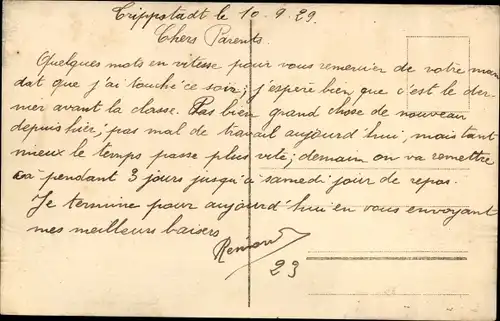 Trippstadt le 10-9-29.
Chers Parents.
Quelques mots en vitesse pour vous remercier de votre man
dat que j'ai touché ce soir; j'espère bien que c'est le der-
nier avant la classe. Pas bien grand chose de nouveau
depuis hier, pas mal de travail aujourd'hui, mais tant
mieux le temps passe plus vite; demain on va remettre
ça pendant 3 jours jusqu'à samedi jour de repos.
Je termine pour aujourd'hui en vous envoyant
mes meilleurs baisers
29